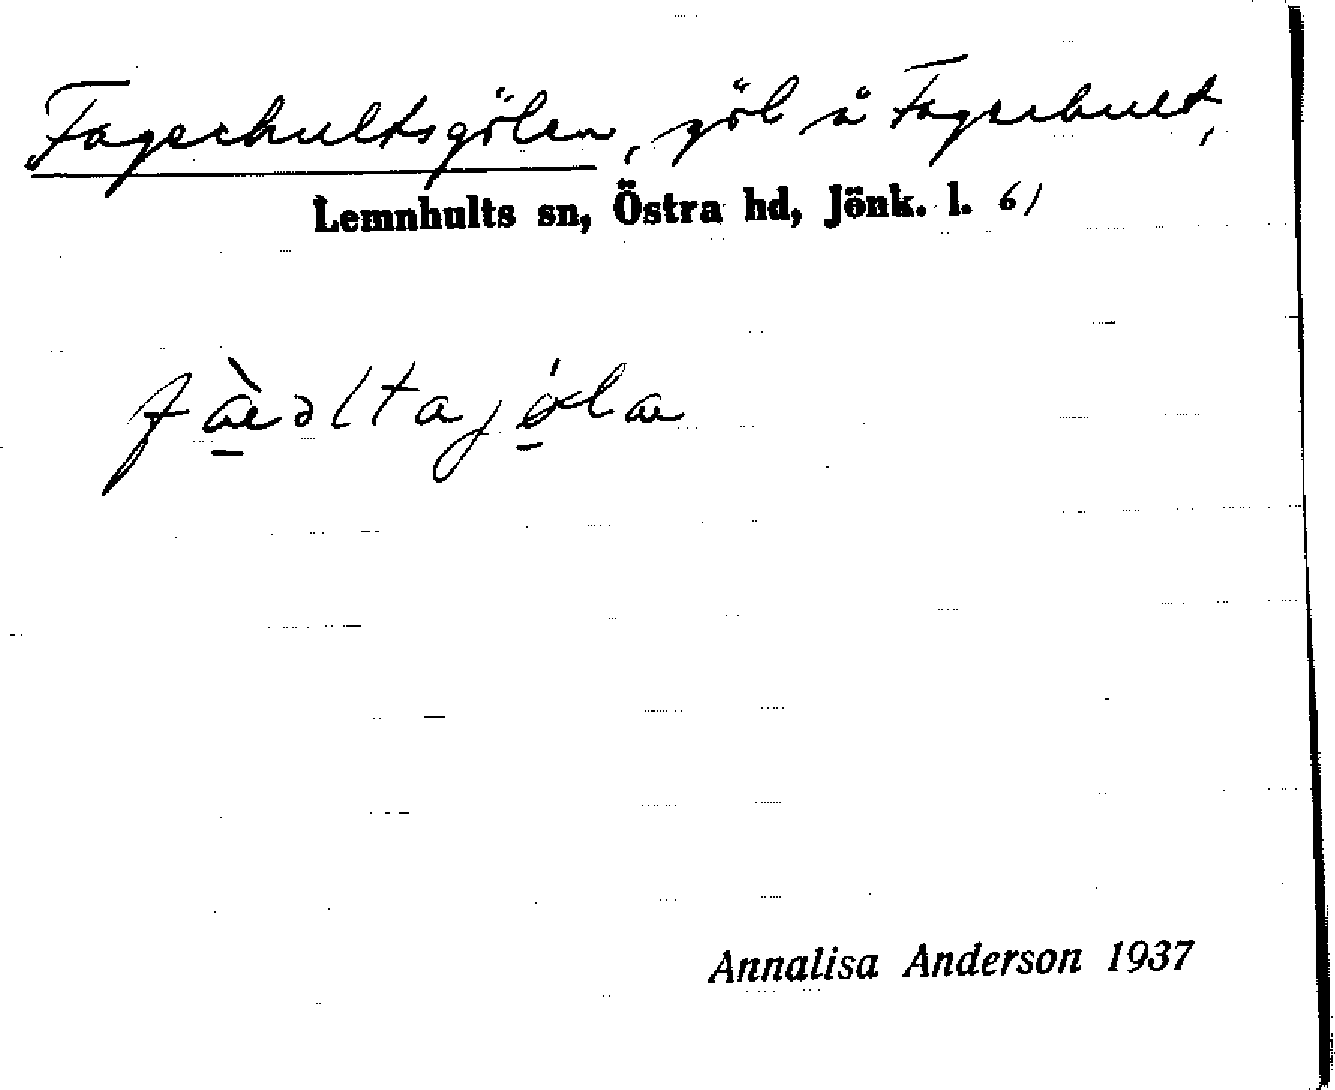 Fagerhultsgölen, göl å Fagerhult,
Lemnhults sn, Östra hd, Jönk. l. 61
Annalisa Anderson 1937